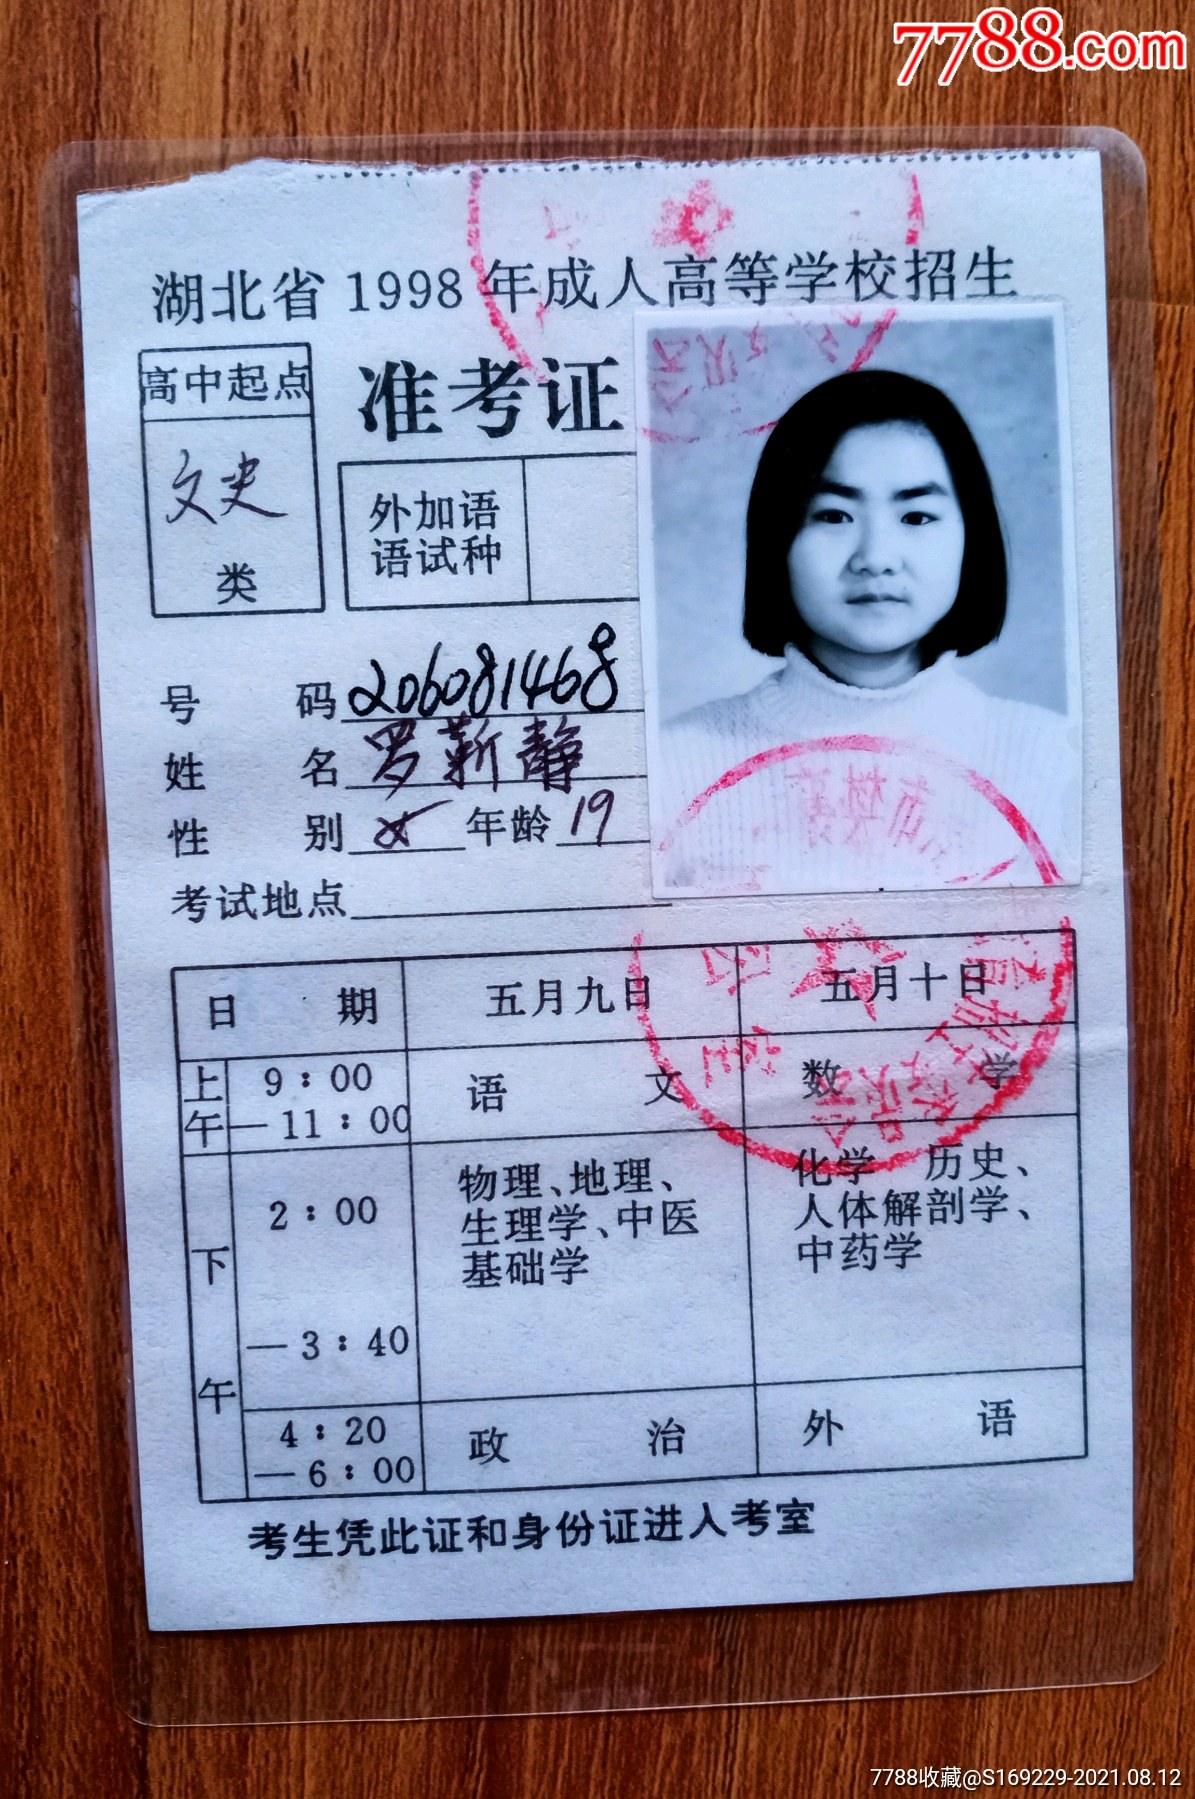 7788.com
湖北省 1998 年成人高等学校招生
高中起点
文史
类
准考证
外加语
语试种
号 码 206081468
姓 名 罗靳静
性 别 女 年龄 19
考试地点
日 期 五月九日 五月十日
上午 9：00—11：00 语 文 数 学
下午 2：00—3：40 物理、地理、 化学 历史、
生理学、中医 人体解剖学、
基础学 中药学
4：20—6：00 政 治 外 语
考生凭此证和身份证进入考室
7788收藏@S169229-2021.08.12